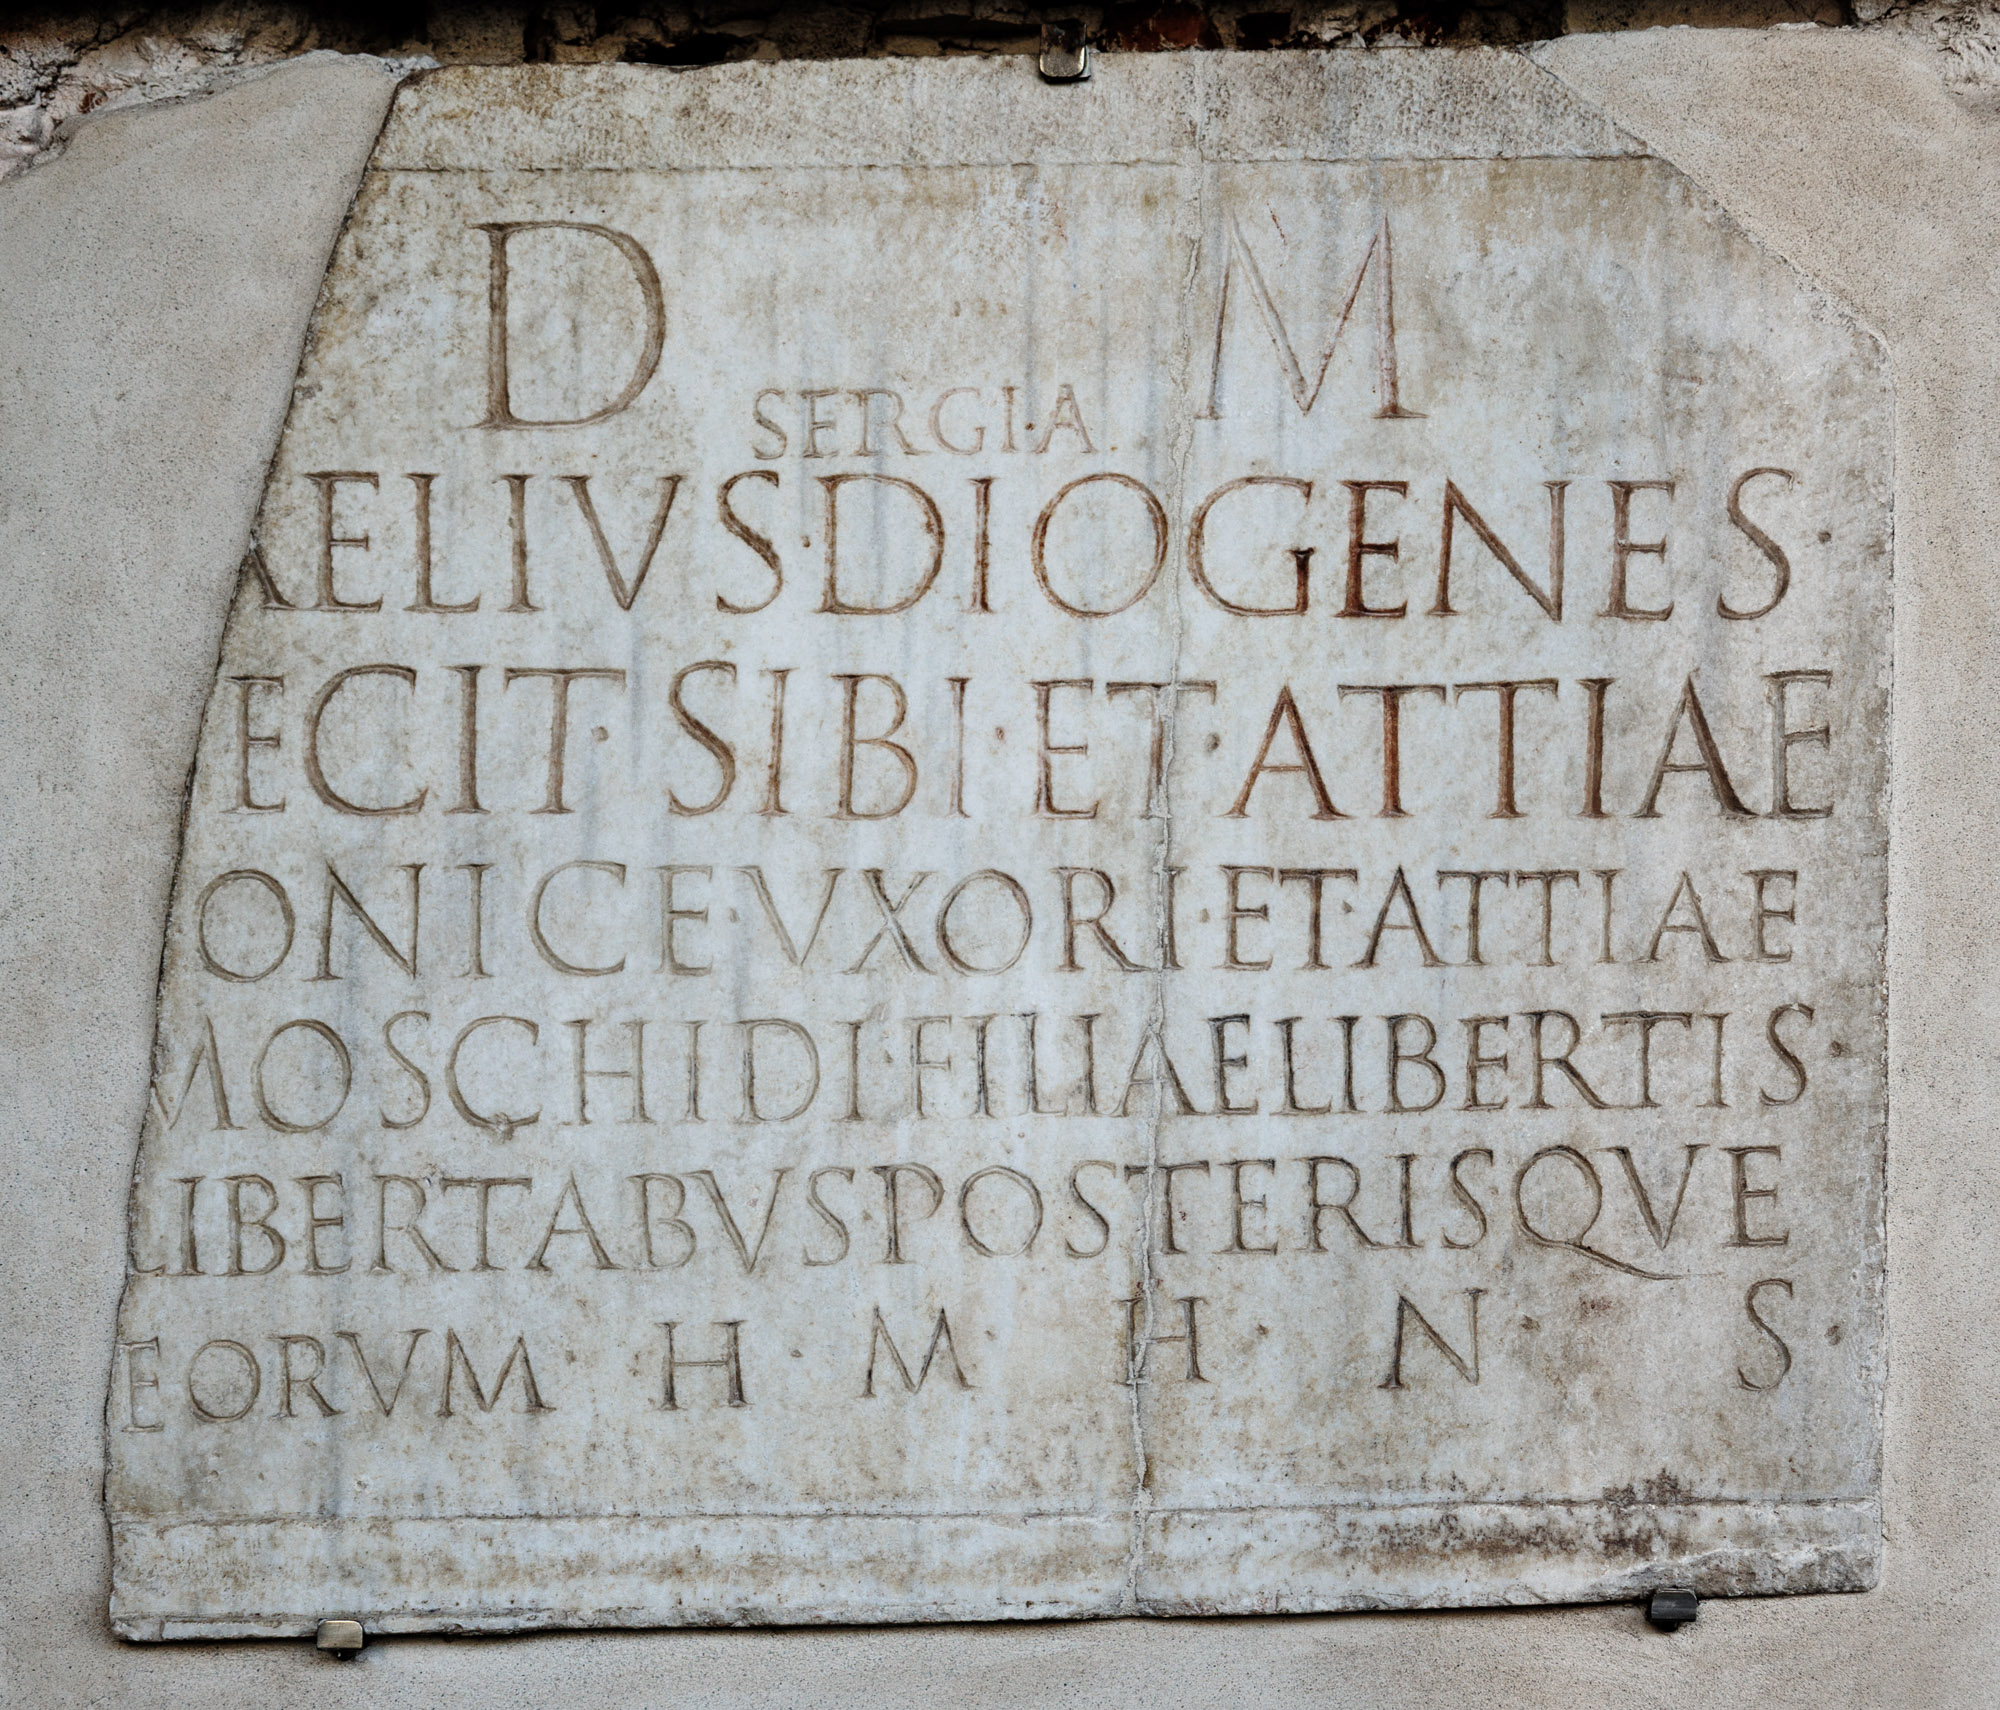 D M
SERGIA
AELIVS·DIOGENES·
ECIT·SIBI·ET·ATTIAE
ONICE·VXORI·ET·ATTIAE
MOSCHIDI·FILIAE LIBERTIS·
LIBERTABVS POSTERISQVE
EORVM H·M·H·N·S·